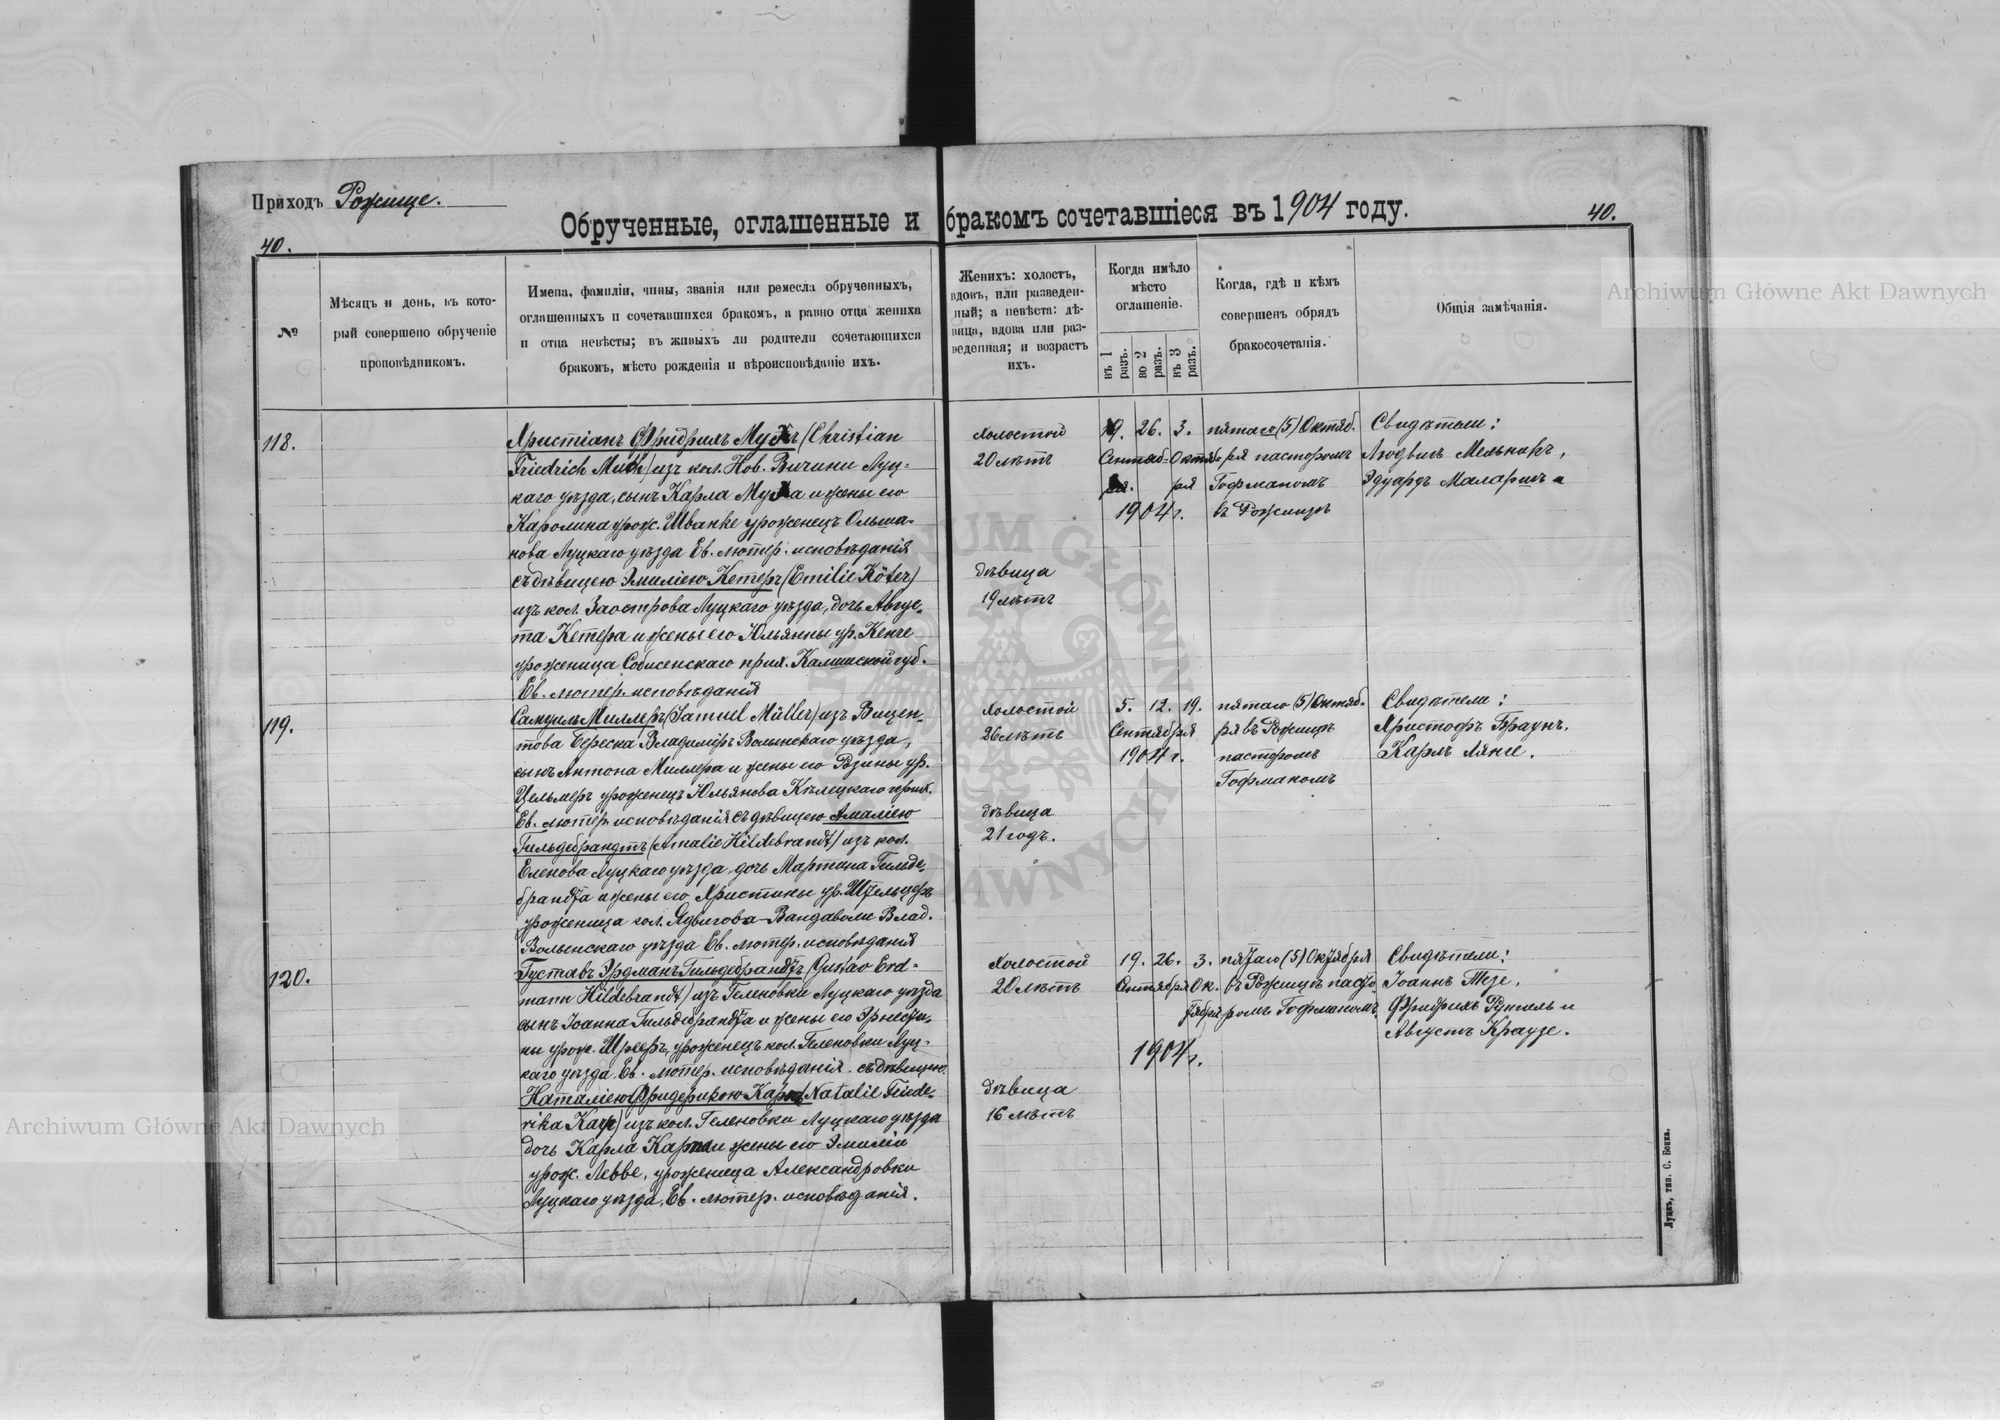 Приходъ Рожище.
Обрученные, оглашенные и бракомъ сочетавшіеся въ 1904 году.
40.
40.
№
Мѣсяцъ и день, въ кото-
рый совершено обрученіе
проповѣдникомъ.
Имена, фамиліи, чины, званія или ремесла обрученныхъ,
оглашенныхъ и сочетавшихся бракомъ, а равно отца жениха
и отца невѣсты; въ живыхъ ли родители сочетающихся
бракомъ, мѣсто рожденія и вѣроисповѣданіе ихъ.
Женихъ: холостъ,
вдовъ, или разведен-
ный; а невѣста: дѣ-
вица, вдова или раз-
веденная; и возрастъ
ихъ.
Когда имѣло
мѣсто
оглашеніе.
въ 1 разъ.
во 2 разъ.
въ 3 разъ.
Когда, гдѣ и кѣмъ
совершенъ обрядъ
бракосочетанія.
Общія замѣчанія.
118.
Христіанъ Фридрихъ (Christian
Friedrich Muth) изъ кол. Нов. Вичини Луц-
каго уѣзда, сынъ Карла и жены его
Каролина урож. Шванке уроженецъ Ольша-
нова Луцкаго уѣзда Ев. лютер. исповѣданія
съ дѣвицею Эмиліею Кетеръ (Emilie Köter)
изъ кол. Заострова Луцкаго уѣзда, дочь Авгус-
та Кетера и жены его Юльянны ур. Кенче
уроженица прих. Калишской губ.
Ев. лютер. исповѣданія
Холостой
20 лѣтъ
дѣвица
19 лѣтъ
19. 26. 3.
Сентяб- Октяб-
ря. ря
1904 г.
пятаго (5) Октяб-
ря пасторомъ
Гофманомъ
въ Рожищѣ
Свидѣтели:
Людвигъ Мельникъ,
Эдуардъ
119.
Самуилъ Миллеръ (Samuel Müller) изъ Вицен-
това Береска Владиміръ Волынскаго уѣзда,
сынъ Антона Миллера и жены его Розины ур.
Цельмеръ уроженецъ Юльянова Кѣлецкаго прих.
Ев. лютер. исповѣданія съ дѣвицею Амаліею
Гильдебрандтъ (Amalie Hildebrandt) изъ кол.
Еленова Луцкаго уѣзда, дочь Мартина Гильде-
брандта и жены его Христины ур. Штельцеръ
уроженица кол. Ядвигова-Вандаволи Влад.
Волынскаго уѣзда Ев. лютер. исповѣданія
Холостой
26 лѣтъ
дѣвица
21 годъ.
5. 12. 19.
Сентября
1904 г.
пятаго (5) Октяб-
ря въ Рожищѣ
пасторомъ
Гофманомъ
Свидѣтели:
Христофъ Браунъ,
Карлъ Лянге.
120.
Густавъ Эрдманъ Гильдебрандтъ (Gustav Erd-
mann Hildebrandt) изъ Геленовки Луцкаго уѣзда
сынъ Іоанна Гильдебрандта и жены его Эрнести-
ны урож. уроженецъ кол. Геленовки Луц-
каго уѣзда, Ев. лютер. исповѣданія съ дѣвицею
Наталіею Фридерикою (Natalie Friede-
rika изъ кол. Геленовки Луцкаго уѣзда
дочь Карла и жены его Эмиліи
урож. Левве, уроженица Александровки
Луцкаго уѣзда, Ев. лютер. исповѣданія.
Холостой
20 лѣтъ
дѣвица
16 лѣтъ
19. 26. 3.
Сентября Ок-
тября
1904 г.
пятаго (5) Октября
въ Рожищѣ пасто-
ромъ Гофманомъ.
Свидѣтели:
Іоаннъ Тезе,
Фридрихъ Руппель и
Августъ Краузе.
Луцкъ, тип. С. Бонка.
Archiwum Główne Akt Dawnych
Archiwum Główne Akt Dawnych